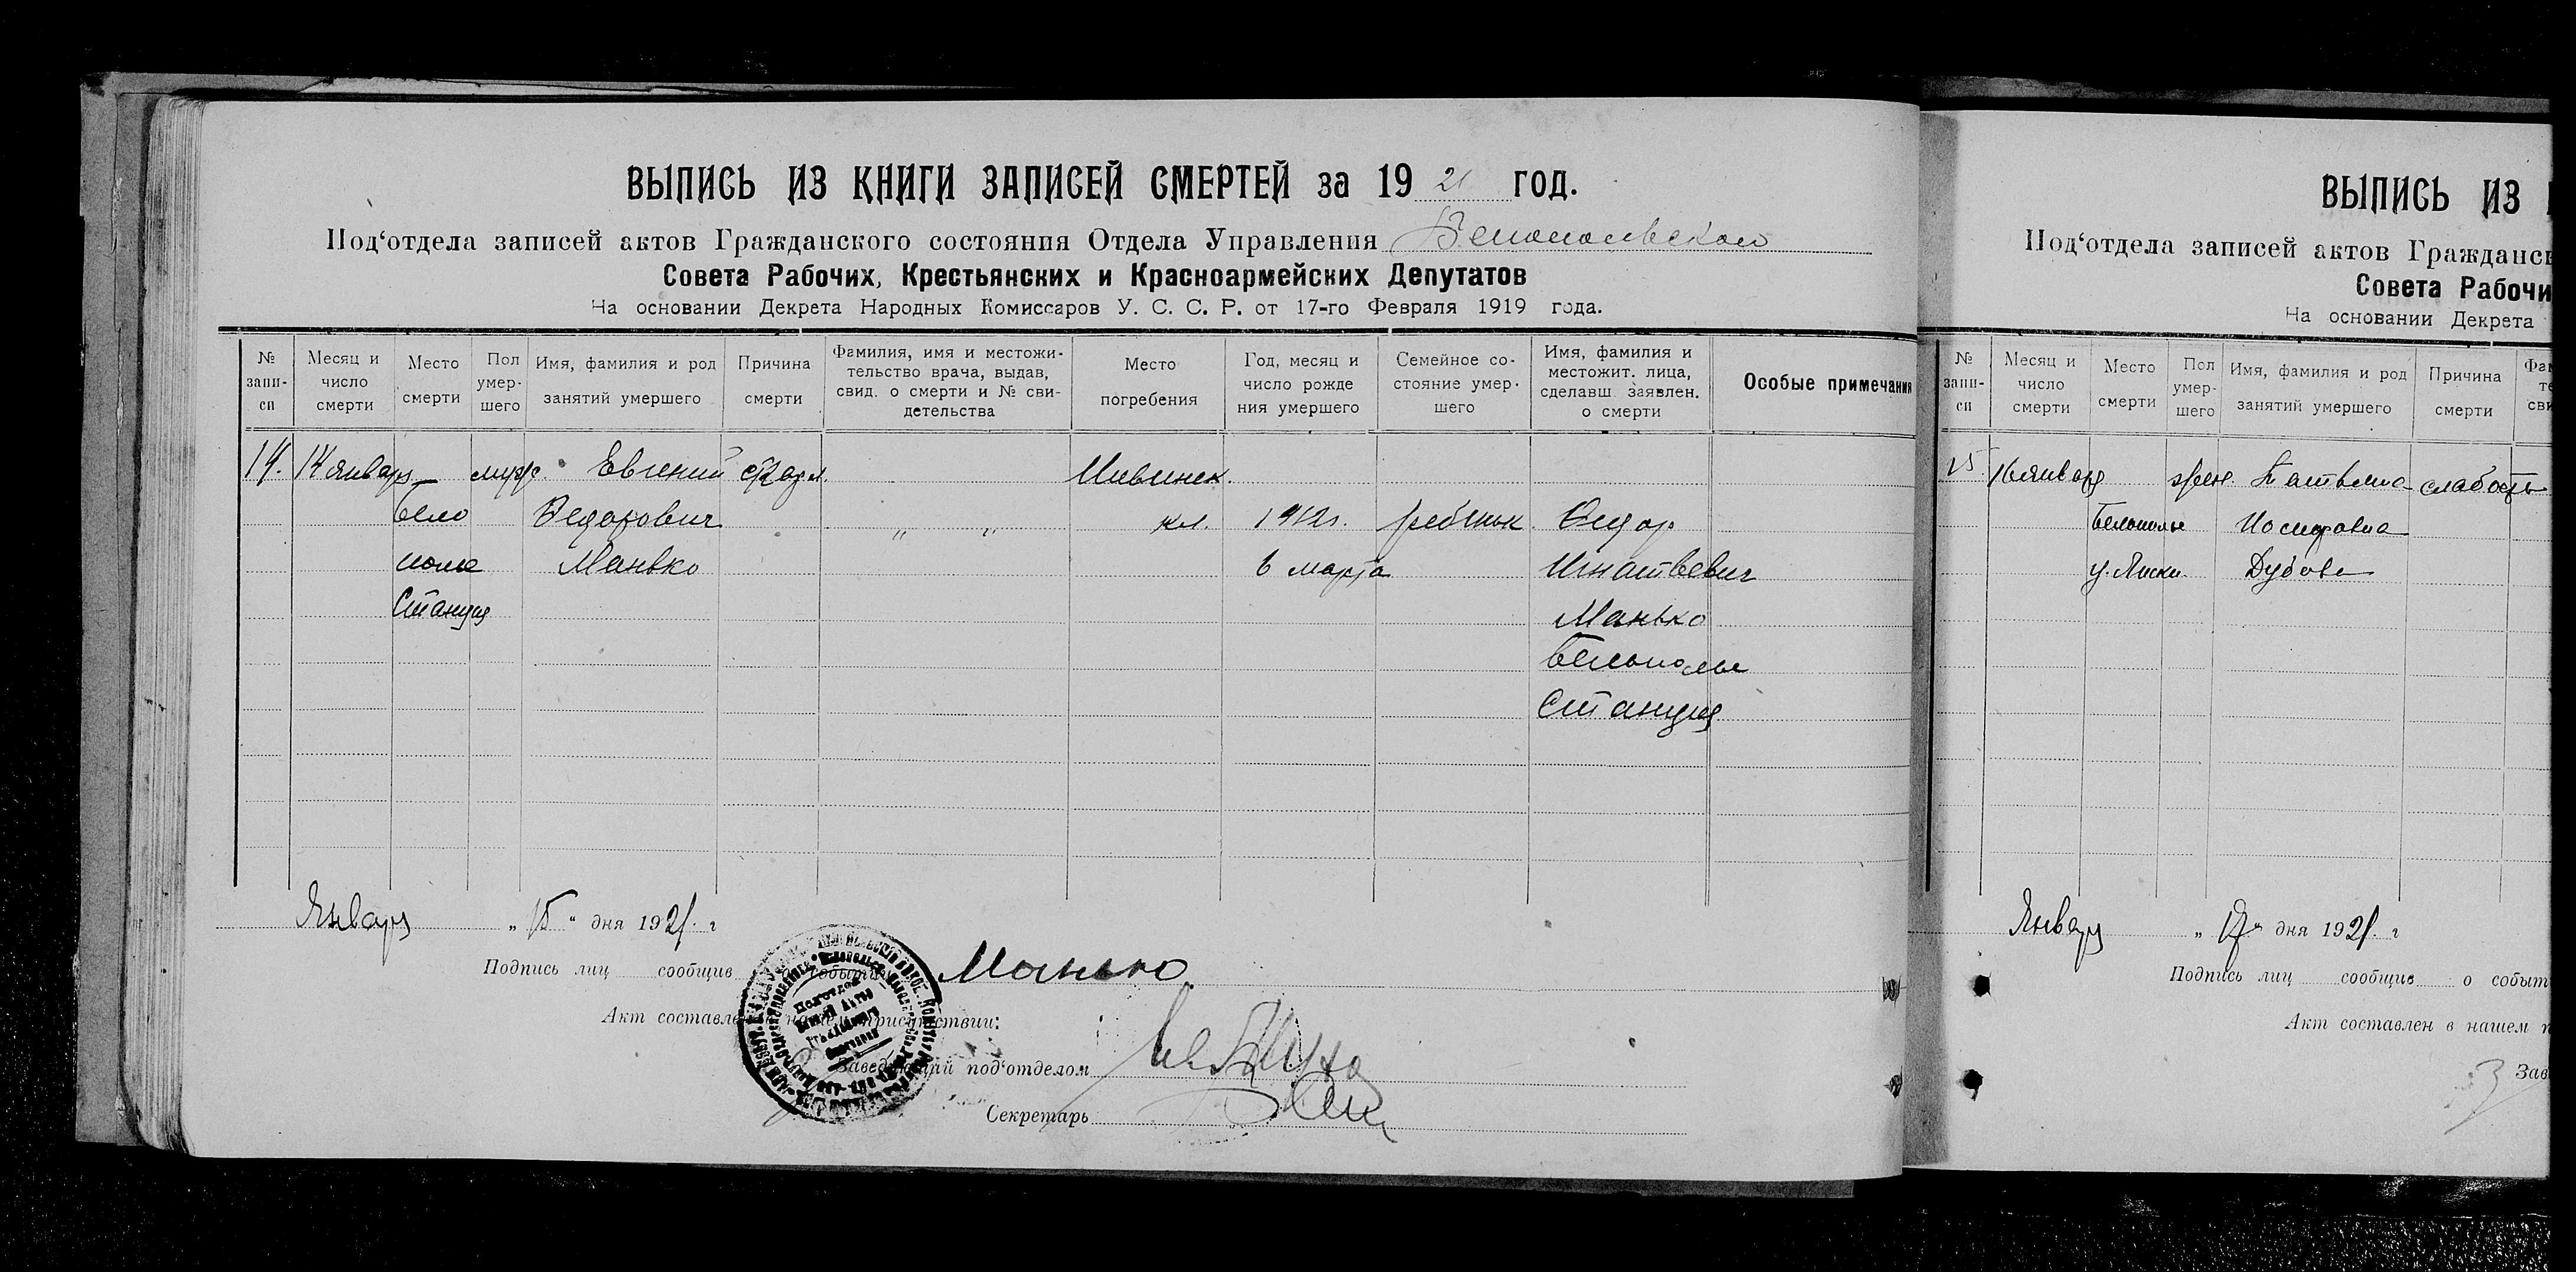 ВЫПИСЬ ИЗ КНИГИ ЗАПИСЕЙ СМЕРТЕЙ за 1921 год.
Под‘отдела записей актов Гражданского состояния Отдела Управления Белопольского
Совета Рабочих, Крестьянских и Красноармейских Депутатов
На основании Декрета Народных Комиссаров У. С. С. Р. от 17-го Февраля 1919 года.
№ запи-
си
Месяц и
число
смерти
Место
смерти
Пол
умер-
шего
Имя, фамилия и род
занятий умершего
Причина
смерти
Фамилия, имя и местожи-
тельство врача, выдав,
свид. о смерти и № сви-
детельства
Место
погребения
Год, месяц и
число рожде
ния умершего
Семейное со-
стояние умер.
шего
Имя, фамилия и
местожит. лица,
сделавш заявлен.
о смерти
Особые примечания
14. 14 января муж. Евгений
Бело Федорович " " кл. 1912г. ребенок Федор
полье Манько 6 марта Игнатьевич
Станция Манько
Белополье
Станция
Январь „ 15 “ дня 1921. г
Подпись лиц сообщив о событии Манько
Акт составлен в нашем присутствии:
Заведующий под‘отделом
Секретарь
ВЫПИСЬ ИЗ
Под‘отдела записей актов Гражданск
Совета Рабочи
На основании Декрета
№
запи-
си
Месяц и
число
смерти
Место
смерти
Пол
умер-
шего
Имя, фамилия и род
занятий умершего
Причина
смерти
15. 16 января жен. Татьяна слабость
Белополье Иосифовна
у. Дубова
Январь „ 17 “ дня 1921. г
Подпись лиц сообщив о событ
Акт составлен в нашем п
Зав